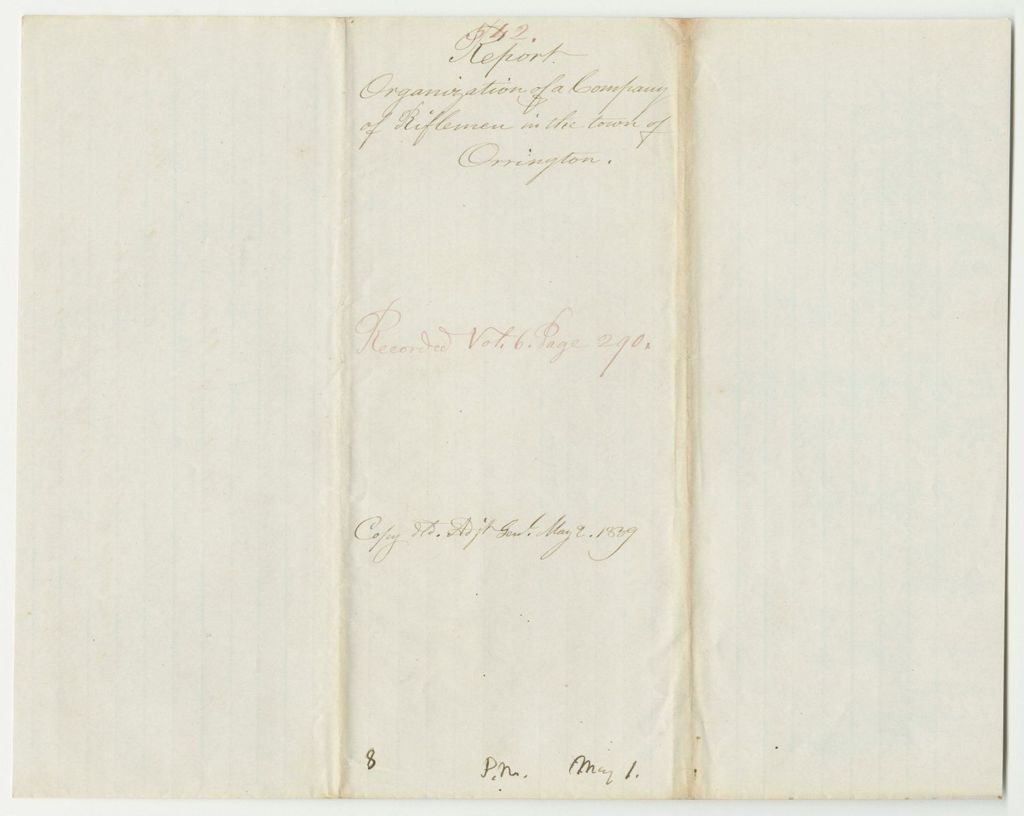 542.
Report.
Organization of a Company
of Riflemen in the town of
Orrington.
Recorded Vol. 6. Page 290.
Copy dld. Adjt Genl. May 2. 1839
8 P.M. May 1.